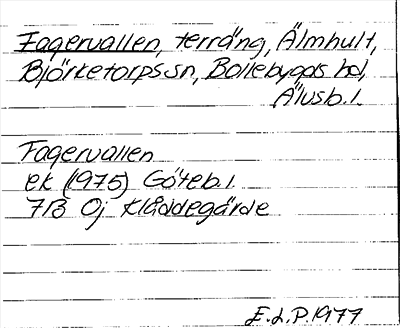 Fagervallen, terräng, Älmhult,
Björketorps sn, Bollebygds hd,
Älvsb.l.
Fagervallen
ek (1975) Göteb.l.
7B 0j Klåddegärde
E.L.P. 1977